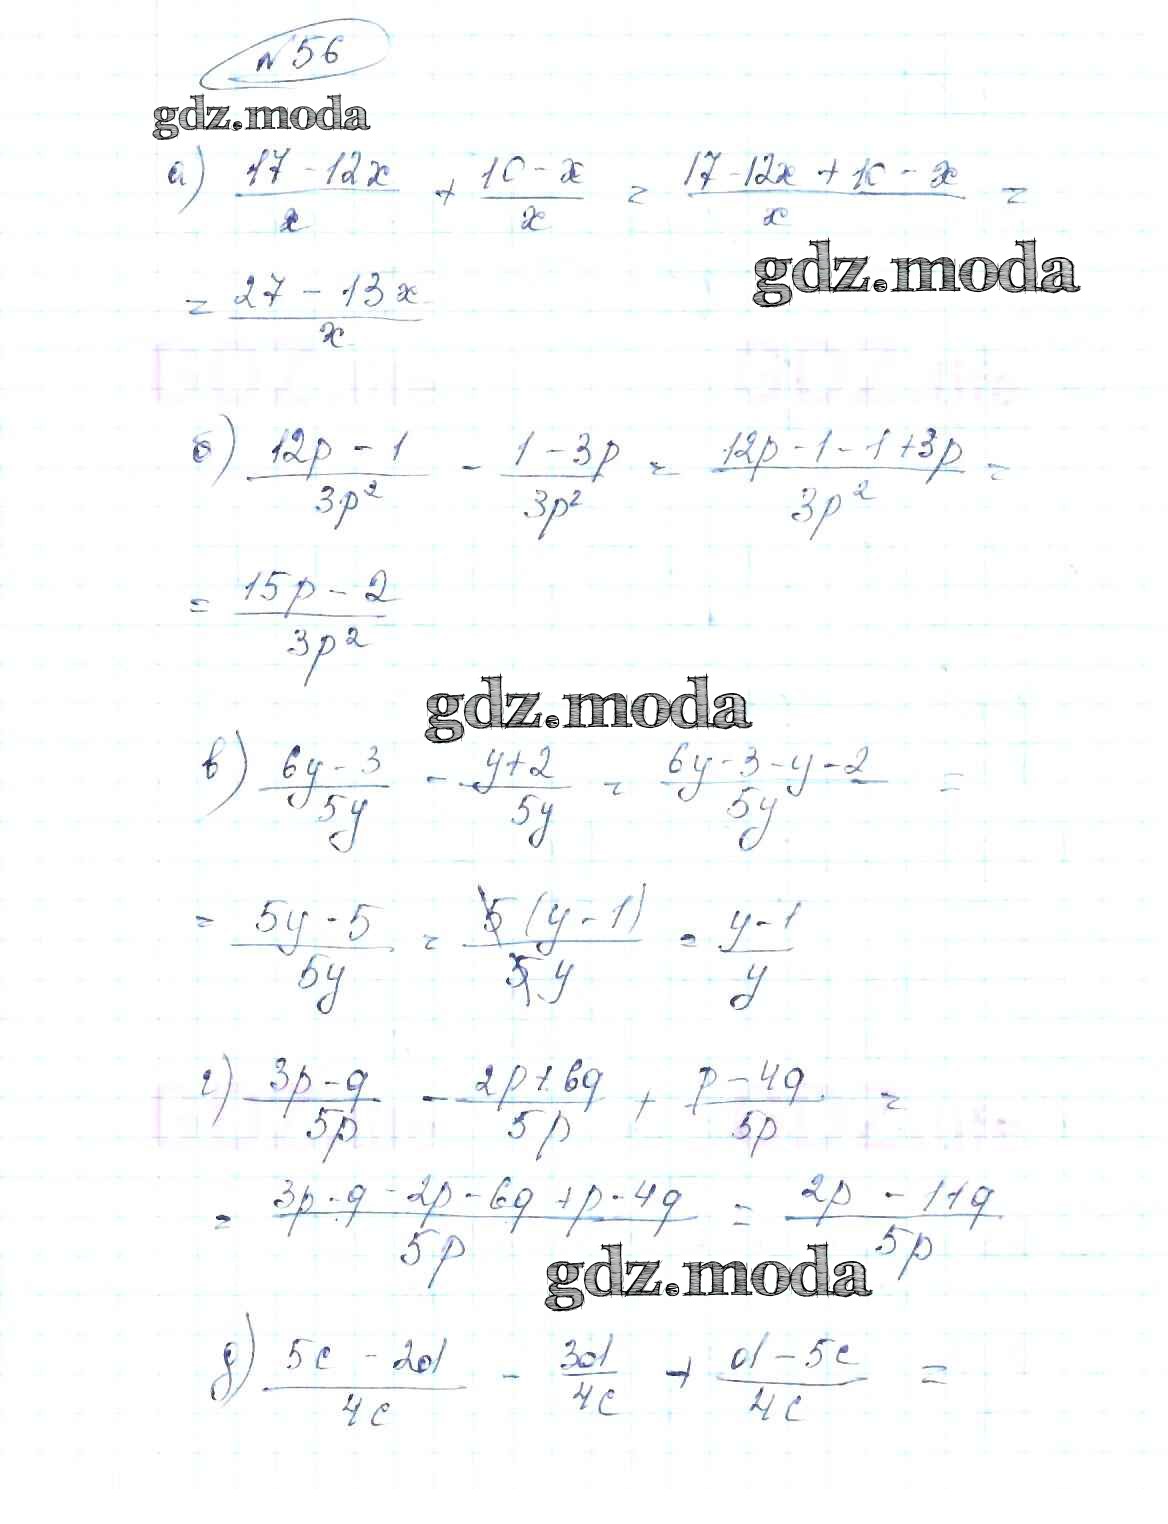 №56
gdz.moda
а) (17 - 12x)/x + (10 - x)/x = (17 - 12x + 10 - x)/x =
gdz.moda
= (27 - 13x)/x
б) (12p - 1)/(3p²) - (1 - 3p)/(3p²) = (12p - 1 - 1 + 3p)/(3p²) =
= (15p - 2)/(3p²)
gdz.moda
в) (6y - 3)/(5y) - (y + 2)/(5y) = (6y - 3 - y - 2)/(5y) =
= (5y - 5)/(5y) = (5(y - 1))/(5y) = (y - 1)/y
г) (3p - q)/(5p) - (2p + 6q)/(5p) + (p - 4q)/(5p) =
= (3p - q - 2p - 6q + p - 4q)/(5p) = (2p - 11q)/(5p)
gdz.moda
д) (5c - 2d)/(4c) - (3d)/(4c) + (d - 5c)/(4c) =